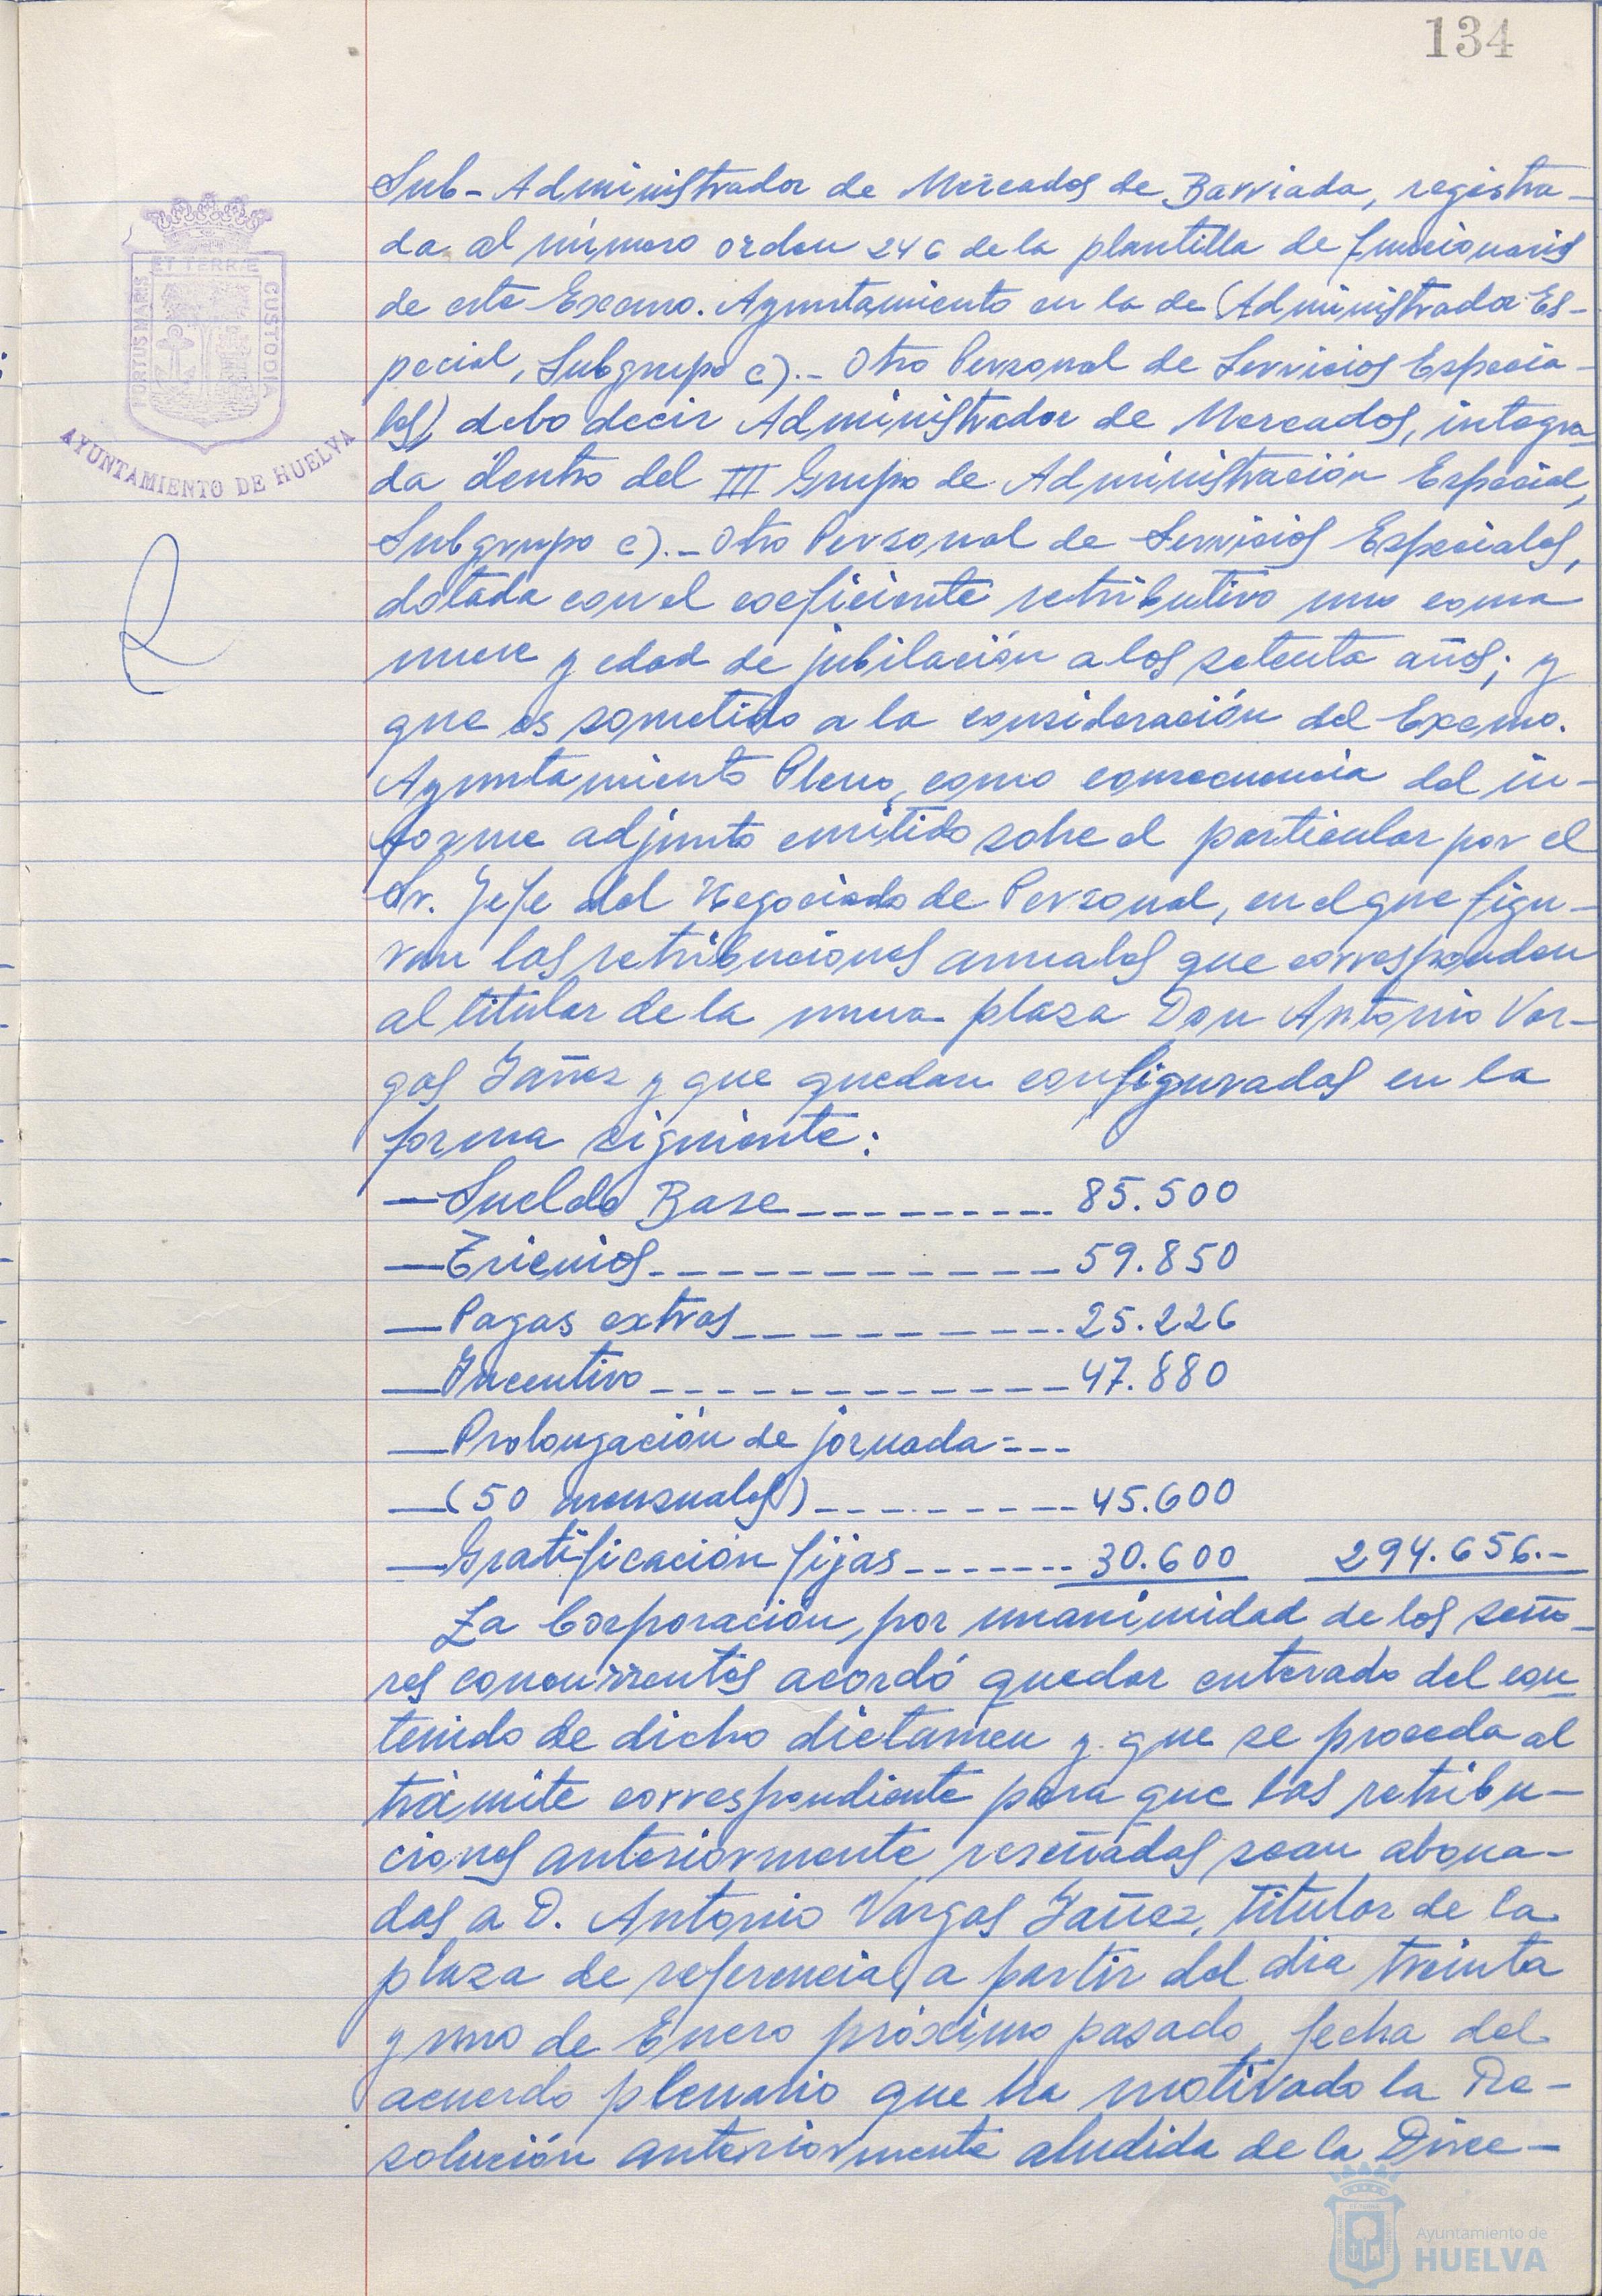 134
Sub-Administrador de Mercados de Barriada, registra-
da al número orden 246 de la plantilla de funcionarios
de este Excmo. Ayuntamiento en la de (Administrador Es-
pecial, Subgrupo c).- Otro Personal de Servicios Especia-
les) debe decir Administrador de Mercados, integra-
da dentro del III Grupo de Administración Especial,
Subgrupo c).- Otro Personal de Servicios Especiales,
dotada con el coeficiente retributivo uno coma
nueve y edad de jubilación a los setenta años; y
que es sometido a la consideración del Excmo.
Ayuntamiento Pleno, como consecuencia del in-
forme adjunto emitido sobre el particular por el
Sr. Jefe del Negociado de Personal, en el que figu-
ran las retribuciones anuales que corresponden
al titular de la nueva plaza Don Antonio Var-
gas Yañez y que quedan configuradas en la
forma siguiente:
—Sueldo Base---------- 85.500
—Trienios------------- 59.850
—Pagas extras---------- 25.226
—Incentivo------------- 47.880
—Prolongación de jornada=---
—(50 mensuales)--------- 45.600
—Gratificación fijas------- 30.600 294.656.-
La Corporación, por unanimidad de los seño-
res concurrentes acordó quedar enterado del con-
tenido de dicho dictamen y que se proceda al
trámite correspondiente para que las retribu-
ciones anteriormente reseñadas sean abona-
das a D. Antonio Vargas Yañez, titular de la
plaza de referencia, a partir del dia treinta
y uno de Enero próximo pasado, fecha del
acuerdo plenario que ha motivado la Re-
solución anteriormente aludida de la Direc-
PORTUS MARIS
ET TERRÆ
CUSTODIA
AYUNTAMIENTO DE HUELVA
Ayuntamiento de
HUELVA